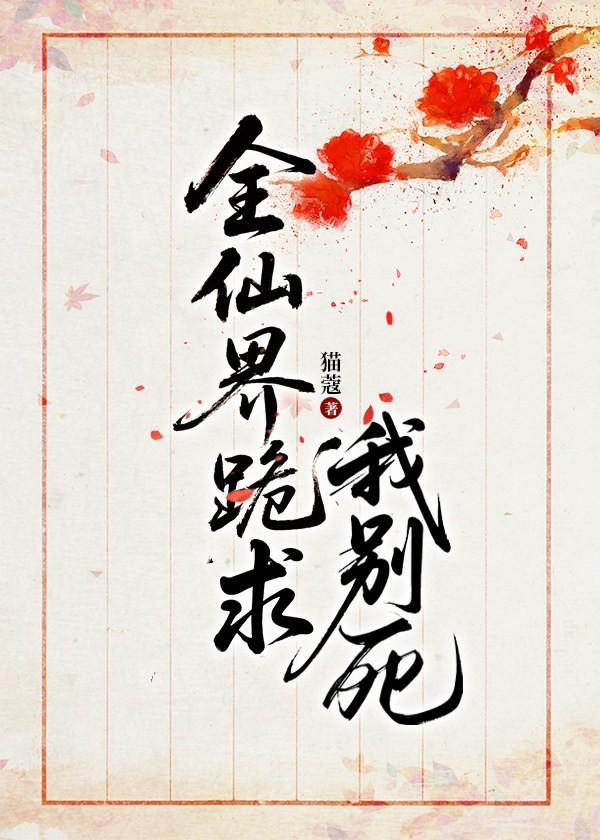 全仙界跪求
我别死
猫蔻著